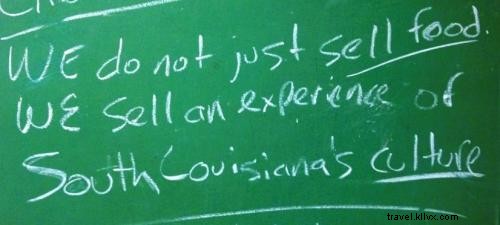 WE do not just sell food.
WE sell an experience of
South Louisiana's culture
travel.kllvx.com